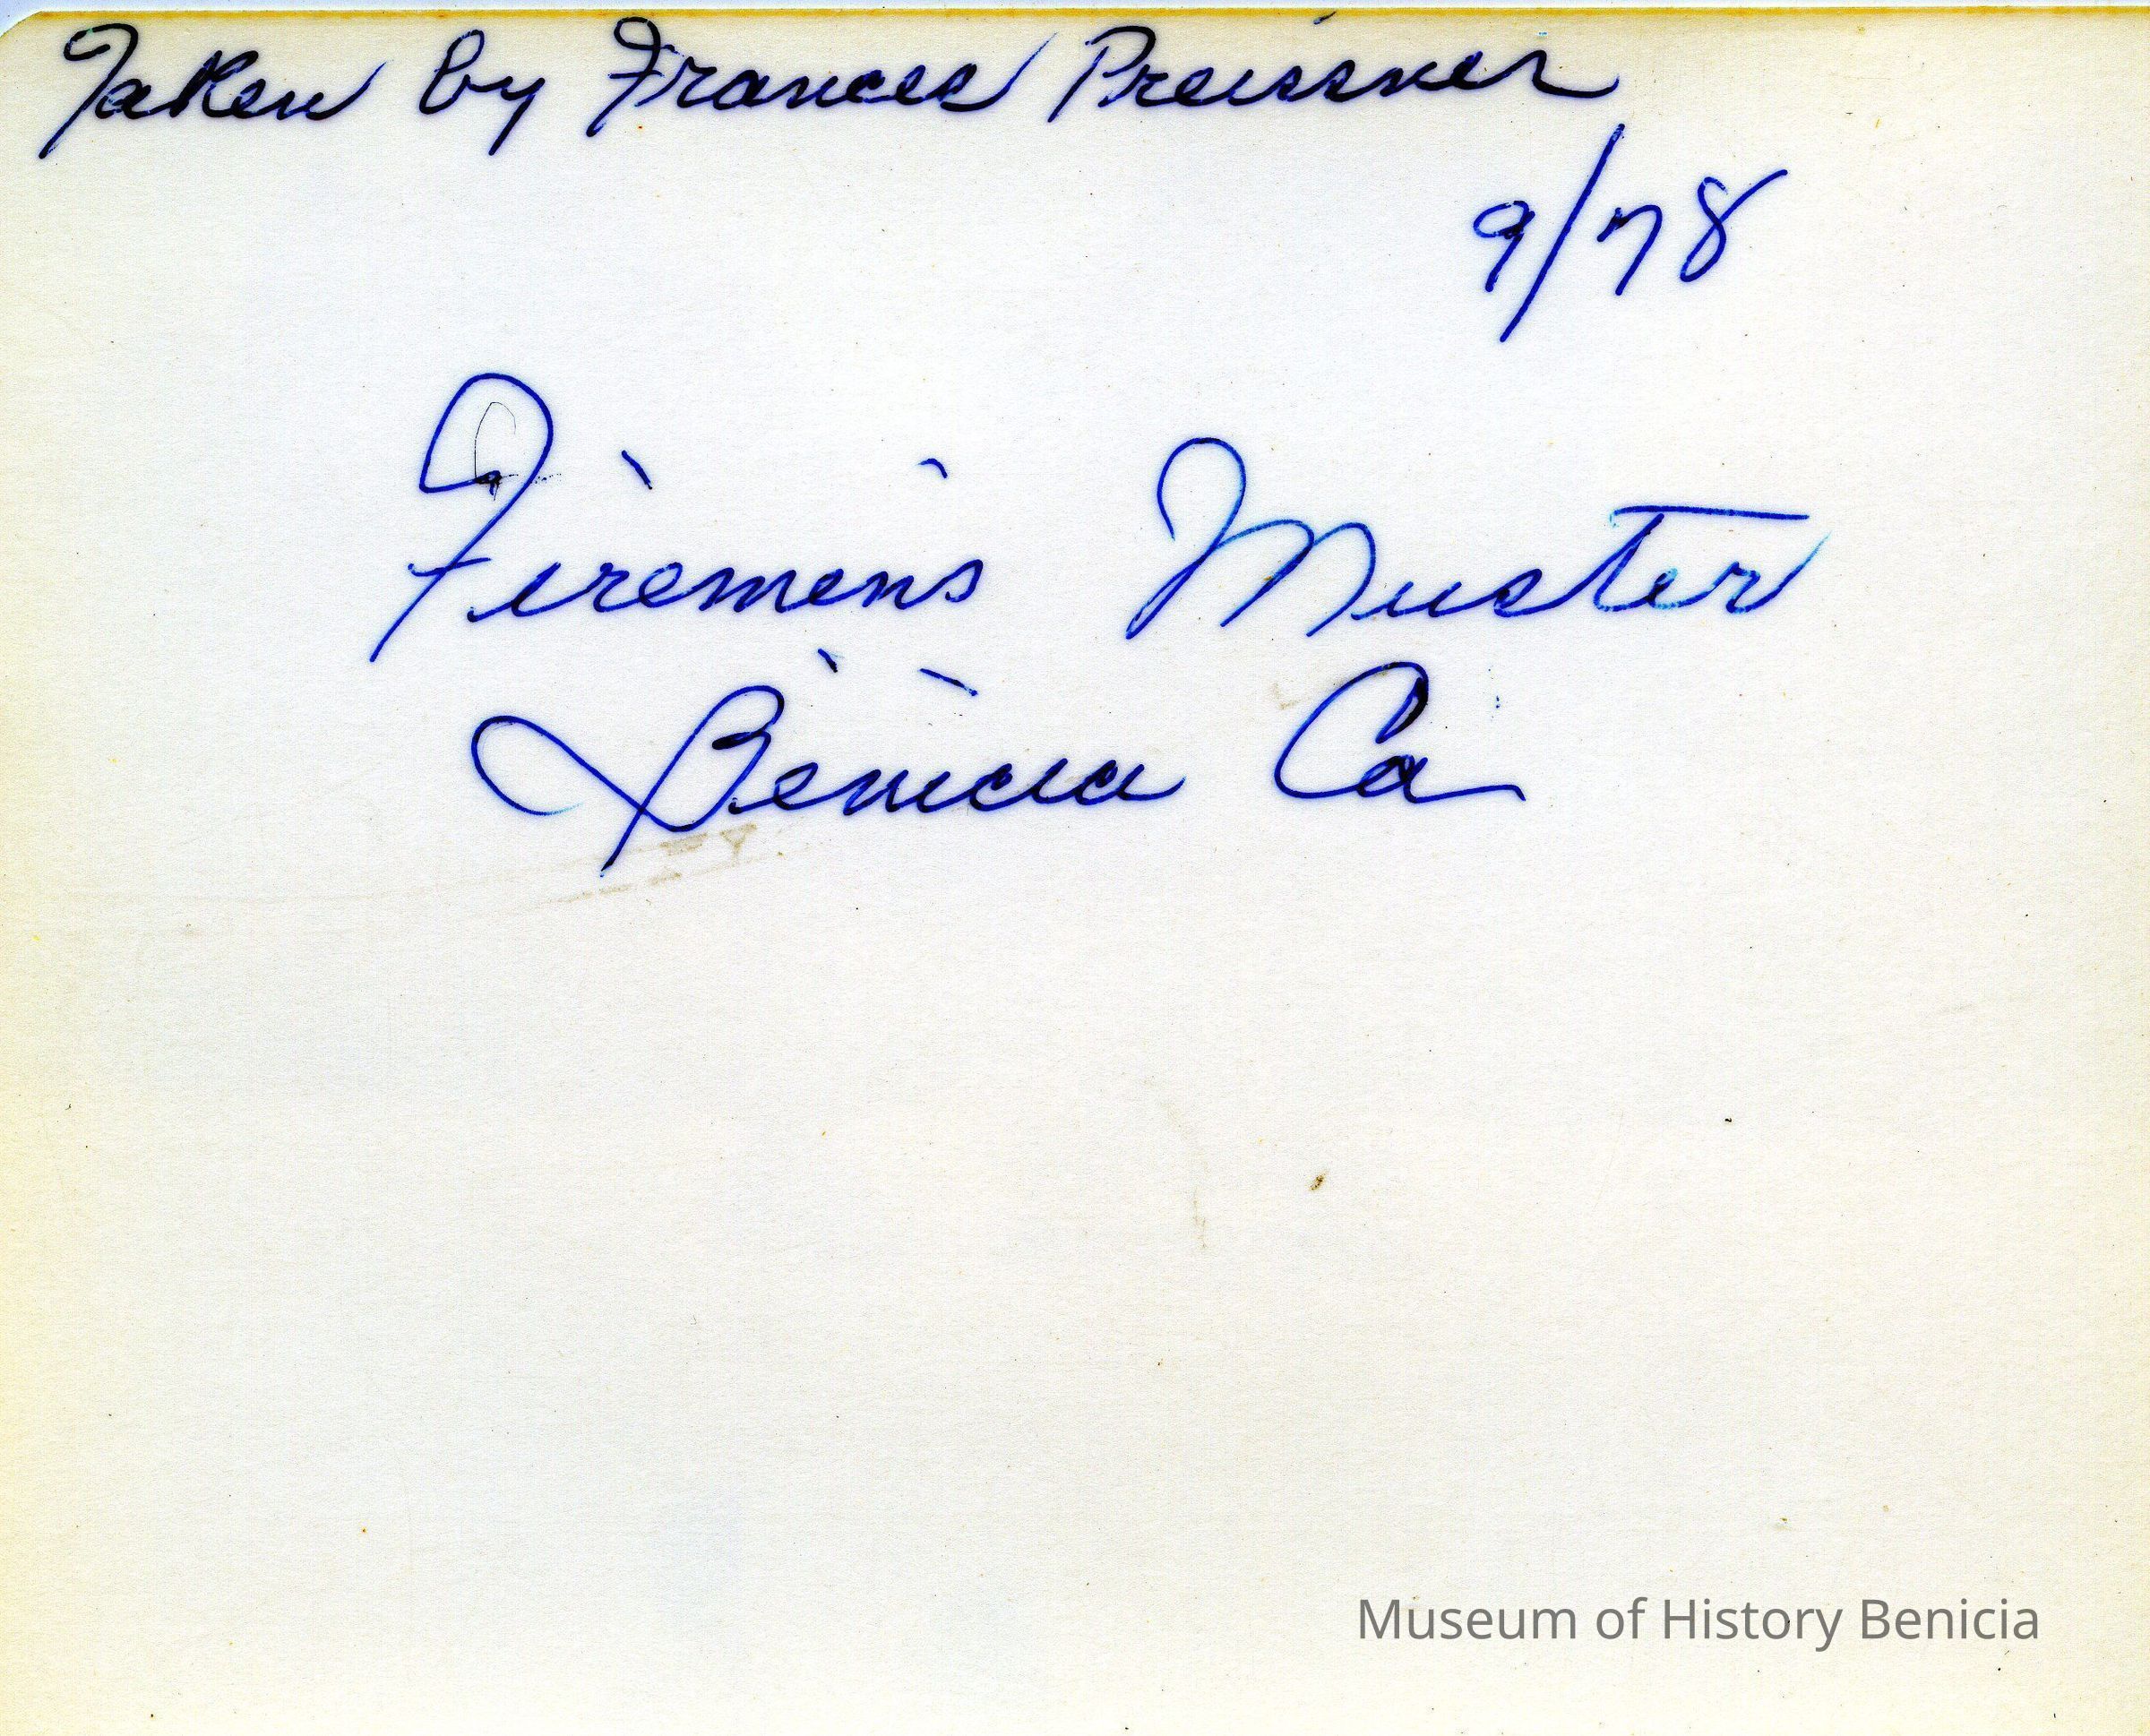 Taken by Frances Preissner
9/78
Firemen's Muster
Benicia Ca
Museum of History Benicia